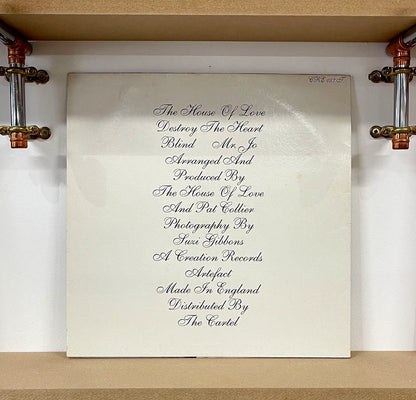 CRE 057 T
The House Of Love
Destroy The Heart
Blind Mr. Jo
Arranged And
Produced By
The House Of Love
And Pat Collier
Photography By
Suzi Gibbons
A Creation Records
Artefact
Made In England
Distributed By
The Cartel